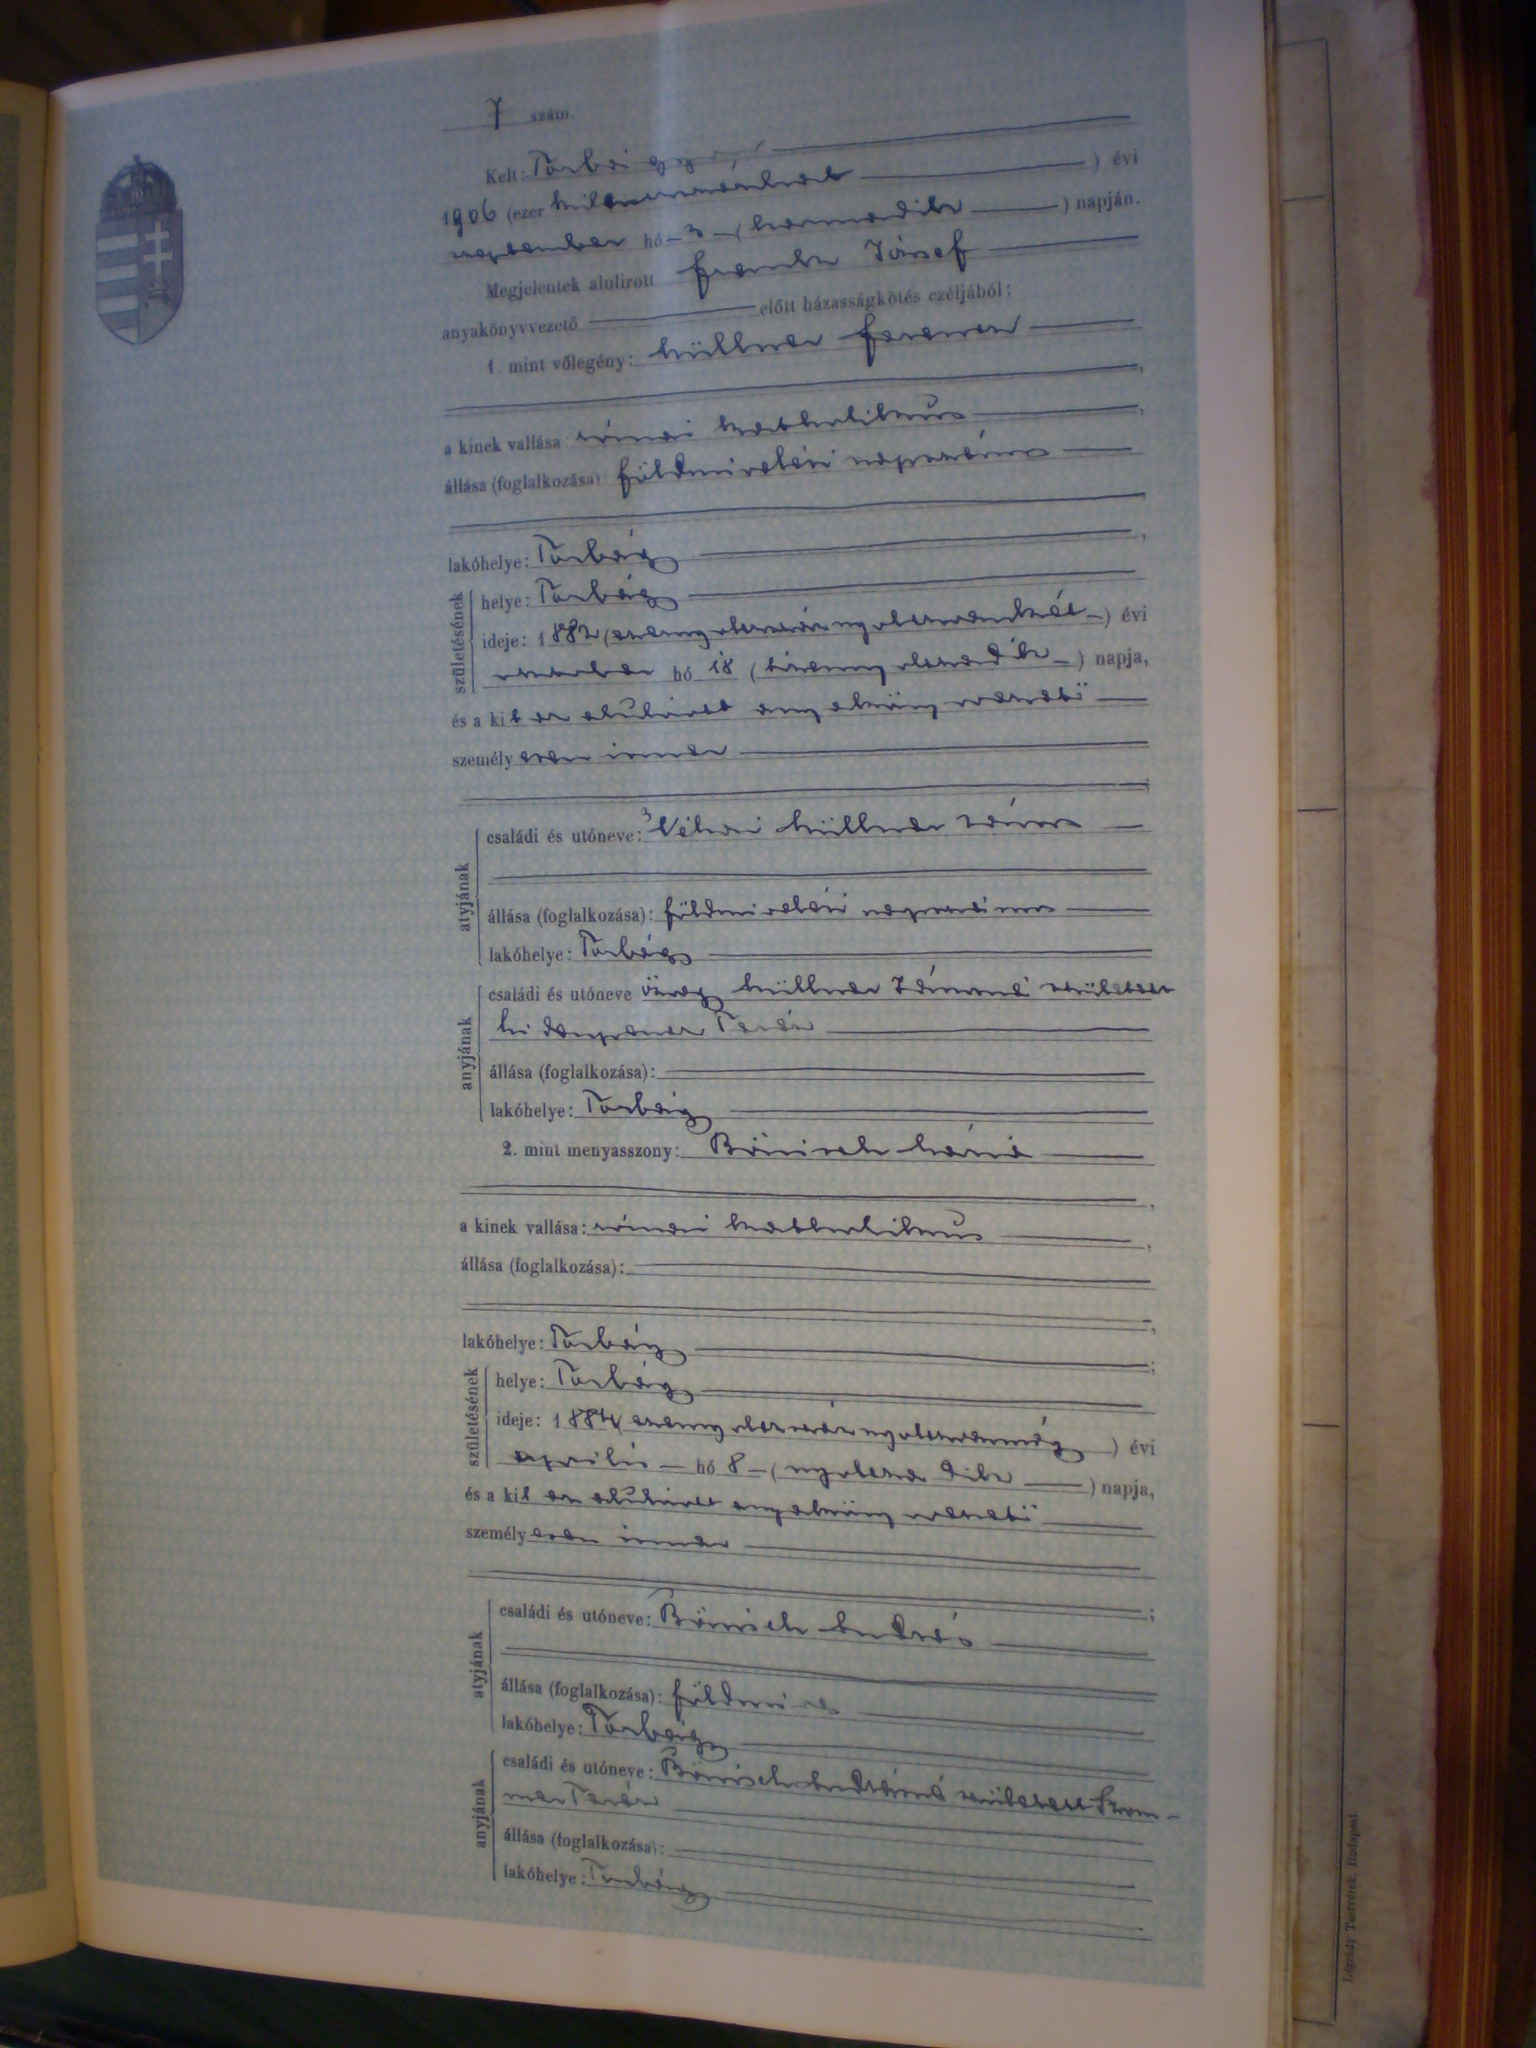 7 szám.
Kelt: Torbágy
1906 (ezer kilencszázhat ) évi
szeptember hó 3 (harmadik ) napján.
Megjelentek alulirott József
anyakönyvvezető előtt házasságkötés czéljából:
1. mint vőlegény: Hüllner Ferencz
a kinek vallása római katholikus
állása (foglalkozása) földmivelési napszámos
lakóhelye: Torbágy
születésének
helye: Torbágy
ideje: 1882 (ezernyolczszáznyolczvankét ) évi
hó 18 (tizennyolczadik ) napja,
és a kit az alulirott anyakönyvvezető
személyesen ismer
atyjának
családi és utóneve: Néhai Hüllner János
állása (foglalkozása): földmivelési napszámos
lakóhelye: Torbágy
anyjának
családi és utóneve özvegy Hüllner Jánosné született
Teréz
állása (foglalkozása):
lakóhelye: Torbágy
2. mint menyasszony: Bönisch Mária
a kinek vallása: római katholikus
állása (foglalkozása):
lakóhelye: Torbágy
születésének
helye: Torbágy
ideje: 1884 (ezernyolczszáznyolczvannégy ) évi
április hó 8 (nyolczadik ) napja,
és a kit az alulirott anyakönyvvezető
személyesen ismer
atyjának
családi és utóneve: Bönisch András
állása (foglalkozása): földmives
lakóhelye: Torbágy
anyjának
családi és utóneve: Bönisch Andrásné született
Teréz
állása (foglalkozása):
lakóhelye: Torbágy
Légrády Testvérek, Budapest